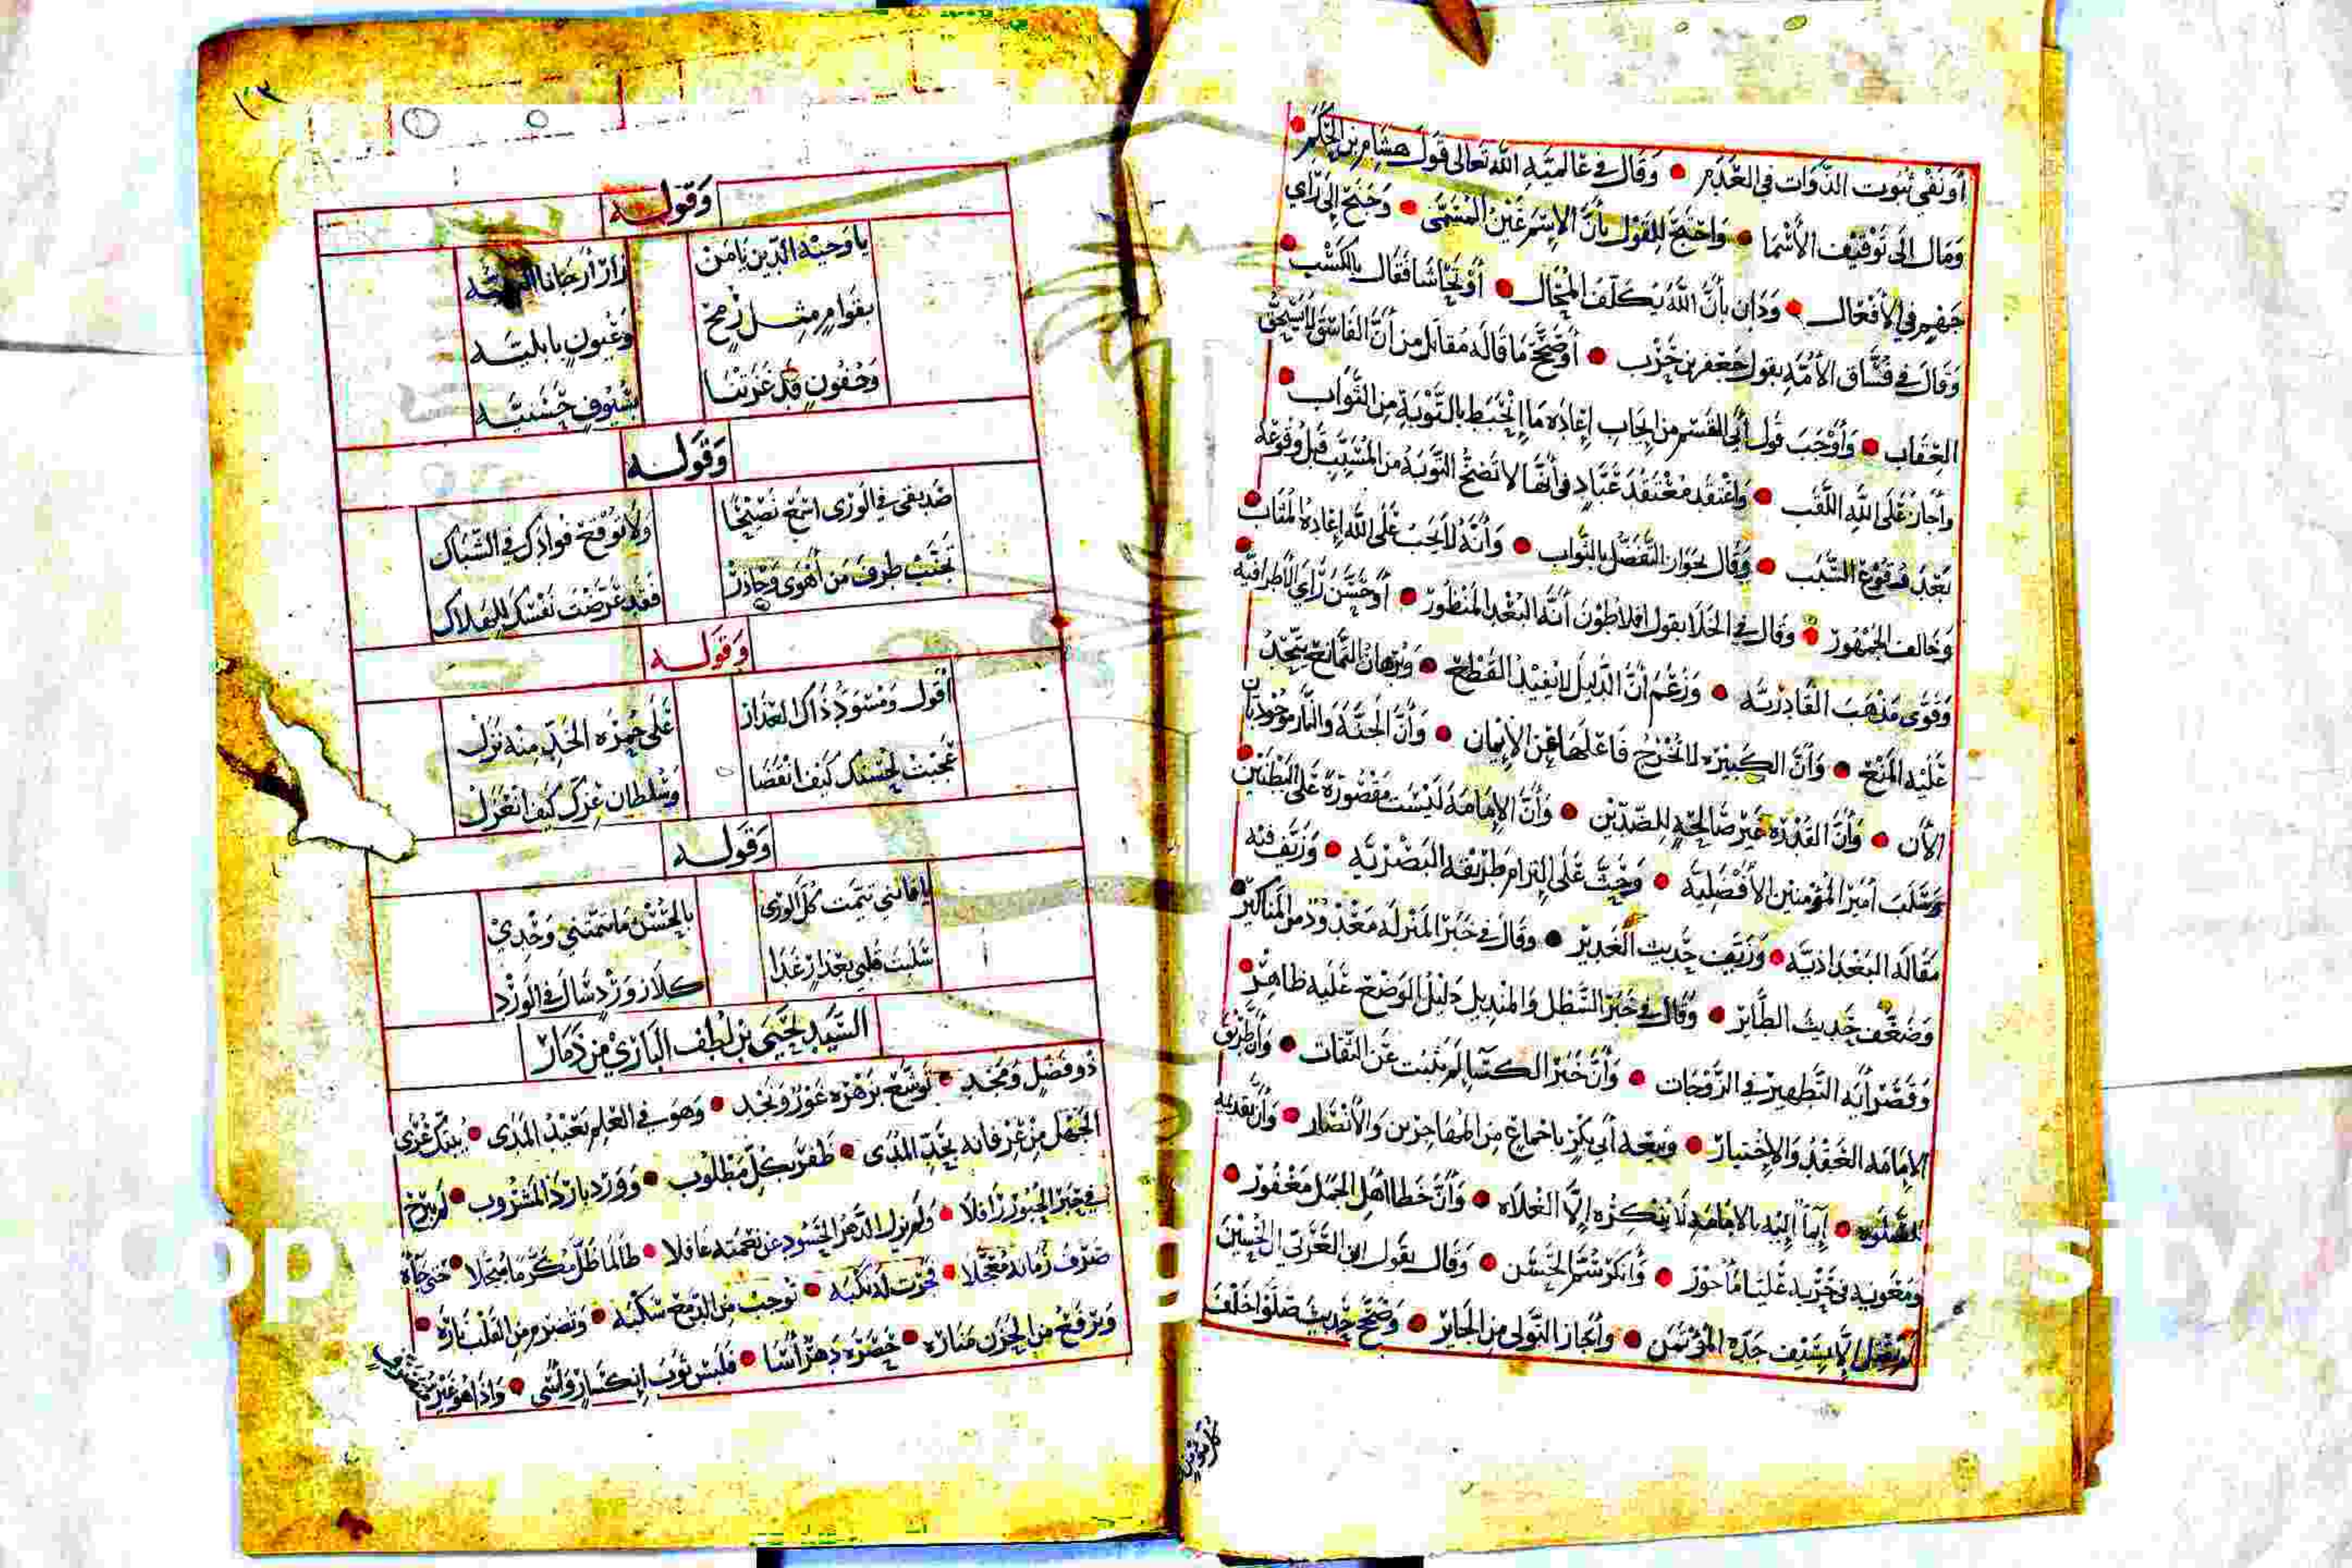 أو نفي ثبوت الذوات في العدم • وقال في عالمية الله تعالى قول هشام بن الحكم •
ومال إلى توقيف الأسما • واحتج للقول بأن الاسم غير المسمى • وجنح إلى رأي
جهم في الأفعال • ودان بأن الله يكلف المحال • أو تحاشا فقال بالكسب •
وقال في فساق الأمة بقول جعفر بن حرب • أو صحح ما قاله مقاتل من أن الفاسق لا يستحق
العقاب • وأوجب قول أبي القسم من إيجاب إعادة ما انحبط بالتوبة من الثواب •
وأجاز على الله اللقب • واعتقد معتقد عباد في أنها لا تصح التوبة من المسبب قبل وقوعه
بعد وقوع السبب • وقال بجواز التفضل بالثواب • وأنه لا يجب على الله إعادة المثاب •
وخالف الجمهور • وقال في الخلا بقول افلاطون أنه البعد المنظور • أو حسن رأي الأطرافيه •
وقوى مذهب القادريه • وزعم أن الدليل لا يفيد القطع • وبرهان التمانع يتجه
عليه المنع • وأن الكبيرة لا تخرج فاعلها عن الإيمان • وأن الجنة والنار موجودتان
الآن • وأن القدرة غير صالحة للضدين • وأن الإمامة ليست مقصورة على البطنين •
وسلب أمير المؤمنين الأفضلية • وحث على التزام طريقة البصرية • وزيف فيه
مقالة البغدادية • وزيف حديث الغدير • وقال في خبر المنزلة معدود من المناكير •
وضعف حديث الطائر • وقال في خبر السطل والمنديل دليل الوضع عليه ظاهر •
وقصر آية التطهير في الزوجات • وأن خبر الكسا لم يثبت عن الثقات • وأن طريق
الإمامة العقد والاختيار • وبيعة أبي بكر بإجماع من المهاجرين والأنصار • وأن تقديمه
للصلوة • إيماً إليه بالإمامة لا ينكره إلا الغلاة • وأن خطا أهل الجمل مغفور •
ومعوية في حربه عليا مأجور • وأنكر سم الحسن • وقال بقول ابن العربي ان الحسين
لم يقتل إلا بسيف جده المؤتمن • وأجاز التولي من الجائر • وصحح حديث صلوا خلف
١٣
وقوله
يا وجيه الدين يا من
زار أرجانا
بقوام مثل رمح
وعيون بابليه
وجفون قد غزتنا
بسيوف حسنيه
وقوله
صديقي في الورى اسمع نصيحا
ولا توقع فوادك في الشباك
تجنب طرف من أهوى وحاذر
فقد عرضت نفسك للهلاك
وقوله
أقول ومسود ذاك العذار
على حمرة الخد منه نزل
عجبت لحسنك كيف انقضا
وسلطان عزك كيف انعزل
وقوله
يا فاتني تيمت كل الورى
بالحسن ما تيمتني وحدي
سلبت قلبي بعذار غدا
كلازورد سال في الورد
السيد يحيى بن لطف الباري من ذمار
ذو فضل ومجد • توشع بزهره غور ونجد • وهو في العلم بعيد المدى • يبتك عرى
الجهل من عرفانه بحد المدى • ظفر بكل مطلوب • وورد بارد المشروب • لم يبرح
في حبر الحبور رافلا • ولم يزل الدهر الحسود عن نعمته غافلا • طالما ظل مكرما مبجلا • حتى جاه
صرف زمانه معجلا • فجرت له نكبة • توجب من الدمع سكبه • وتضرم من القلب ناره •
وترفع من الحزن مناره • حصره دهر أسا • فلبس ثوب انكسار وأسى • واذا هو غير